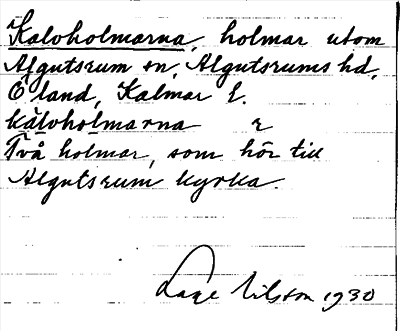 Kalvholmarna, holmar utom
Algutsrum sn, Algutsrums hd,
Öland, Kalmar l.
kalvholmarna r
Två holmar, som hör till
Algutsrum kyrka.
Lage Nilsson 1930